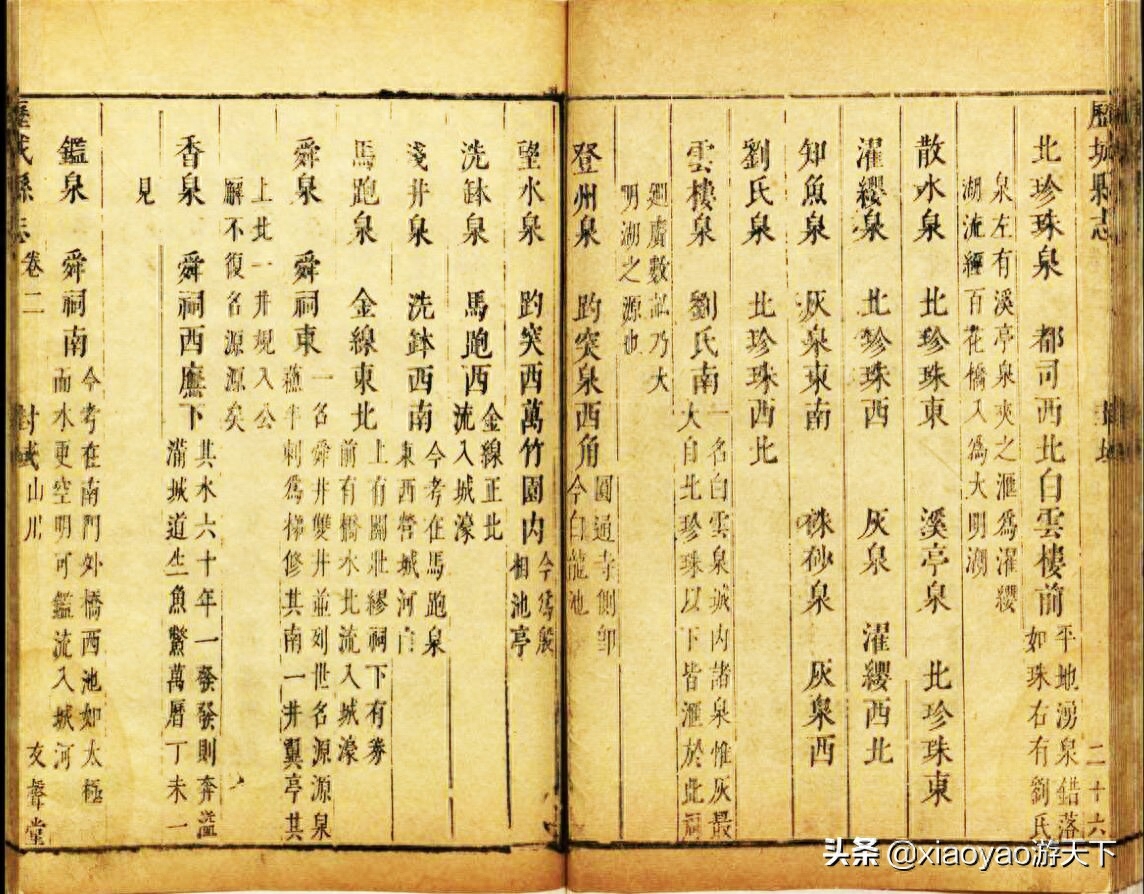 歷城縣志
二十六
北珍珠泉 都司西北白雲樓前 平地湧泉錯落
如珠右有劉氏
泉左有溪亭泉夾之滙為濯纓
湖流經百花橋入為大明湖
散水泉 北珍珠東 溪亭泉 北珍珠東
濯纓泉 北珍珠西 灰泉 濯纓西北
知魚泉 灰泉東南 硃砂泉 灰泉西
劉氏泉 北珍珠西北
雲樓泉 劉氏南 一名白雲泉城內諸泉惟灰最
大自北珍珠以下皆滙於此
廻賡數泓乃大
明湖之源也
登州泉 趵突泉西角 圓通寺側卽
今白龍池
望水泉 趵突西萬竹園內 今為殷
相池亭
洗鉢泉 馬跑西 金線正北
流入城濠
淺井泉 洗鉢西南 今考在馬跑泉
東西營城河
馬跑泉 金線東北 上有關壯繆祠下有
前有橋水北流入城濠
舜泉 舜祠東 一名舜井雙井並列世名源源泉
蘸半刺為梯修其南一井翼亭其
上北一井規入公
廨不復名源源矣
香泉 舜祠西廡下 其水六十年一發發則奔溢
滿城道生魚鱉萬曆丁未一
見
鑑泉 舜祠南 今考在南門外橋西池如太極
而水更空明可鑑流入城河
歷城縣志
卷二
封域
山川
友聲堂
头条 @xiaoyao游天下